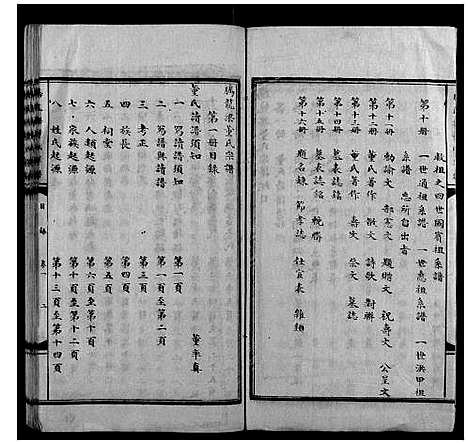 啟祖之四世圖實祖系譜
第十冊 一世通祖系譜 一世惠祖系譜 一世洪甲祖
系譜 惠所自出者
第十一冊 勅諭文 部憲文 題贈文 祝壽文 公呈文
第十二冊 董氏著作 散文 詩歌 對聯
第十三冊 董氏著作 壽文 祭文 墓誌
第十四冊 墓表誌銘
第十五冊 墓表誌銘 輓聯
第十六冊 題名錄 節孝誌 仕宦表 雜類
騰龍梁董氏宗譜
第一冊目錄
董氏請譜須知 董平真
一 寫請譜須知 第一頁
二 寫譜與請譜 第一頁至第二頁
三 考正 第三頁
四 族長 第四頁
五 祠堂 第五頁
六 人類起源 第六頁至第十頁
七 家族起源 第十頁至第十二頁
八 姓氏起源 第十三頁至第十四頁
目錄
卷一
二